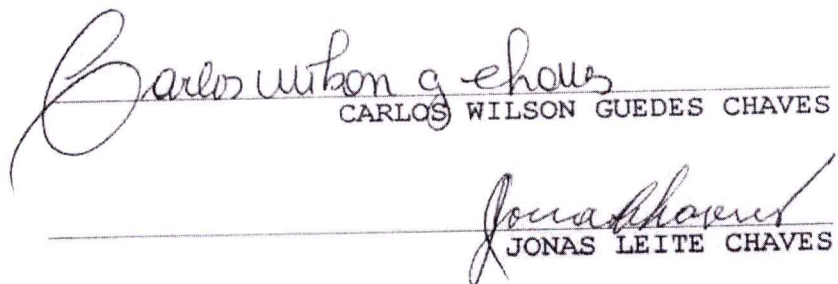 Carlos Wilson G Chaves
CARLOS WILSON GUEDES CHAVES
Jonas Chaves
JONAS LEITE CHAVES